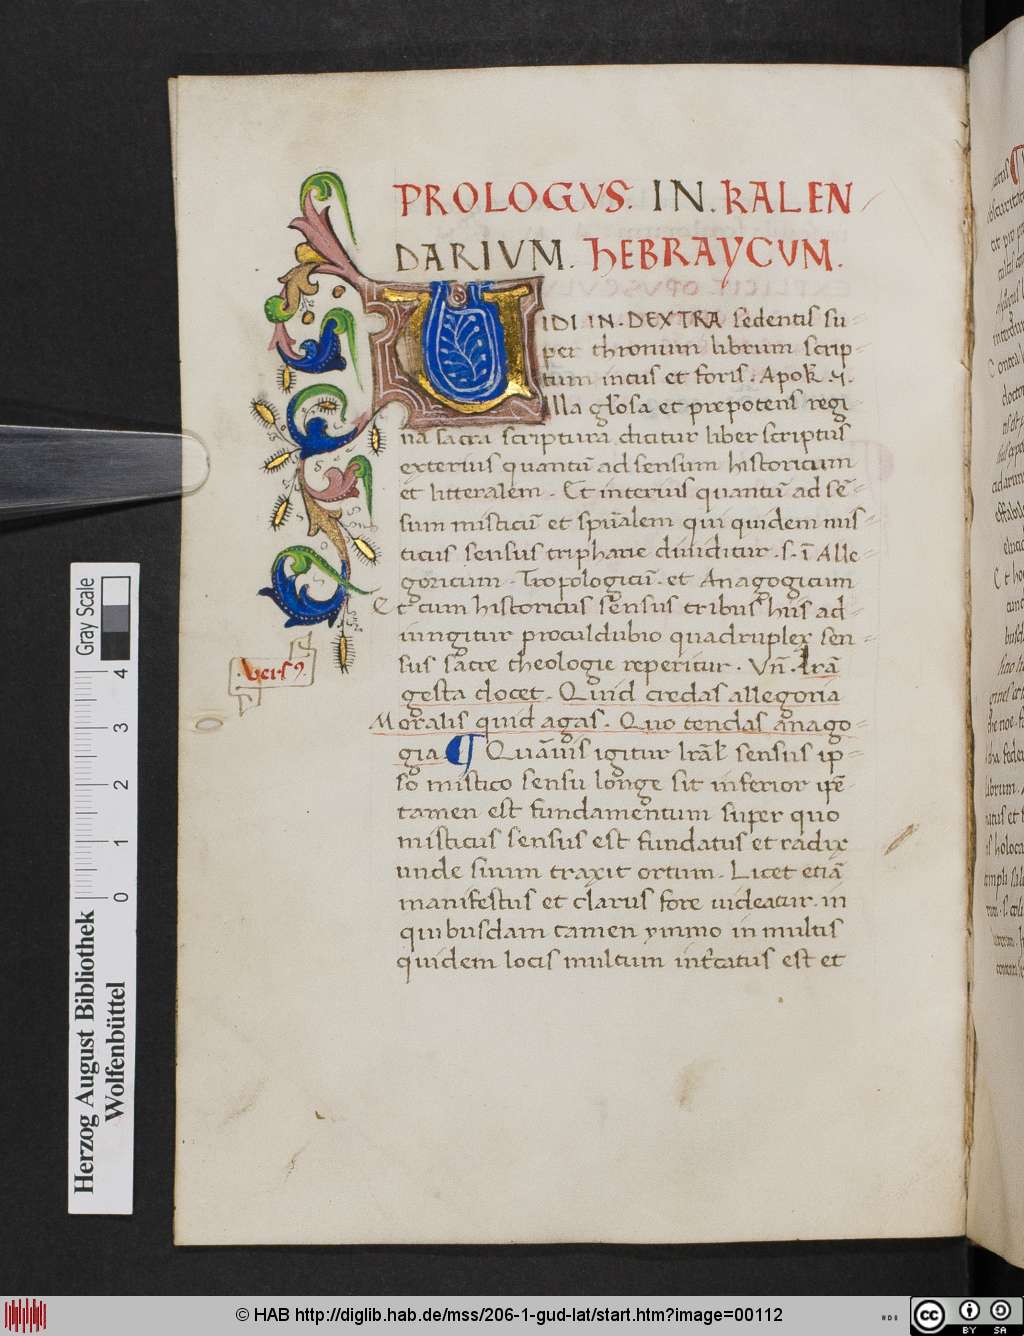 PROLOGVS. IN. KALEN
DARIVM. hEBRAYCUM.
UIDI IN. DEXTRA sedentis su-
per thronum librum scrip-
tum intus et foris. Apok̄. 5.
Illa glosa et prepotens regi
na sacra scriptura dicitur liber scriptus
exterius quantū ad sensum historicum
et litteralem. Et interius quantū ad sē-
sum misticū et spūalem qui quidem mis-
ticus sensus tripharie diuiditur. s. ī Alle-
goricum. Tropologicū. et Anagogicum
Et cum historicus sensus tribus his ad-
iungitur proculdubio quadruplex sen-
sus sacre theologie reperitur. Vn̄. lrā
gesta docet. Quid credas allegoria
Moralis quid agas. Quo tendas anago-
gia. ¶ Quāuis igitur lrāł sensus ip-
so mistico sensu longe sit inferior ipē
tamen est fundamentum super quo
misticus sensus est fundatus et radix
unde suum traxit ortum. Licet etiā
manifestus et clarus fore uideatur. in
quibusdam tamen ymmo in multis
quidem locis multum int'catus est et
.Vers9.
Gray Scale
0 1 2 3 4
Herzog August Bibliothek
Wolfenbüttel
© HAB http://diglib.hab.de/mss/206-1-gud-lat/start.htm?image=00112
cc BY SA